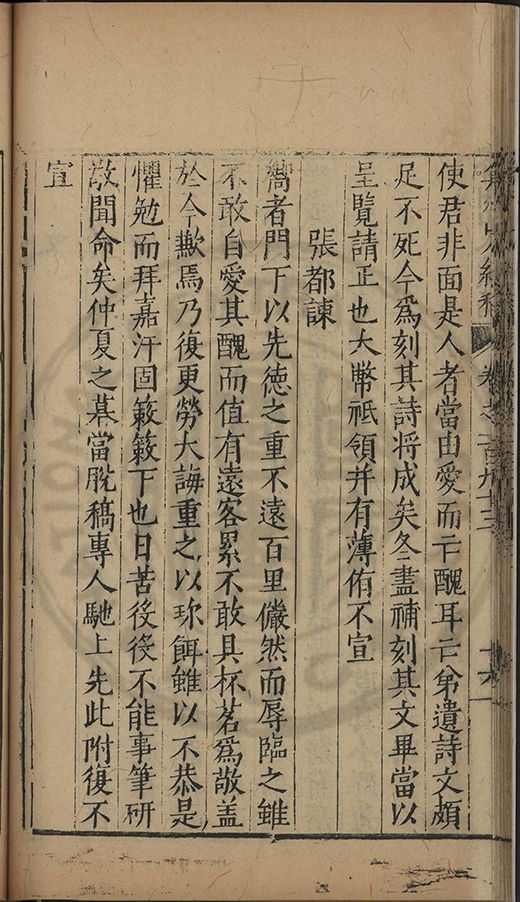 使君非面是人者當由愛而亡醜耳亡弟遺詩文頗
足不死今爲刻其詩将成矣冬盡補刻其文畢當以
呈覽請正也大幣祗領并有薄侑不宣
張都諫
嚮者門下以先徳之重不遠百里儼然而辱臨之雖
不敢自愛其醜而值有遠客累不敢具杯茗爲敬盖
於今歉焉乃復更勞大誨重之以珎餌雖以不恭是
懼勉而拜嘉汗固簌簌下也日苦役役不能事筆研
敬聞命矣仲夏之暮當脫稿專人馳上先此附復不
宣